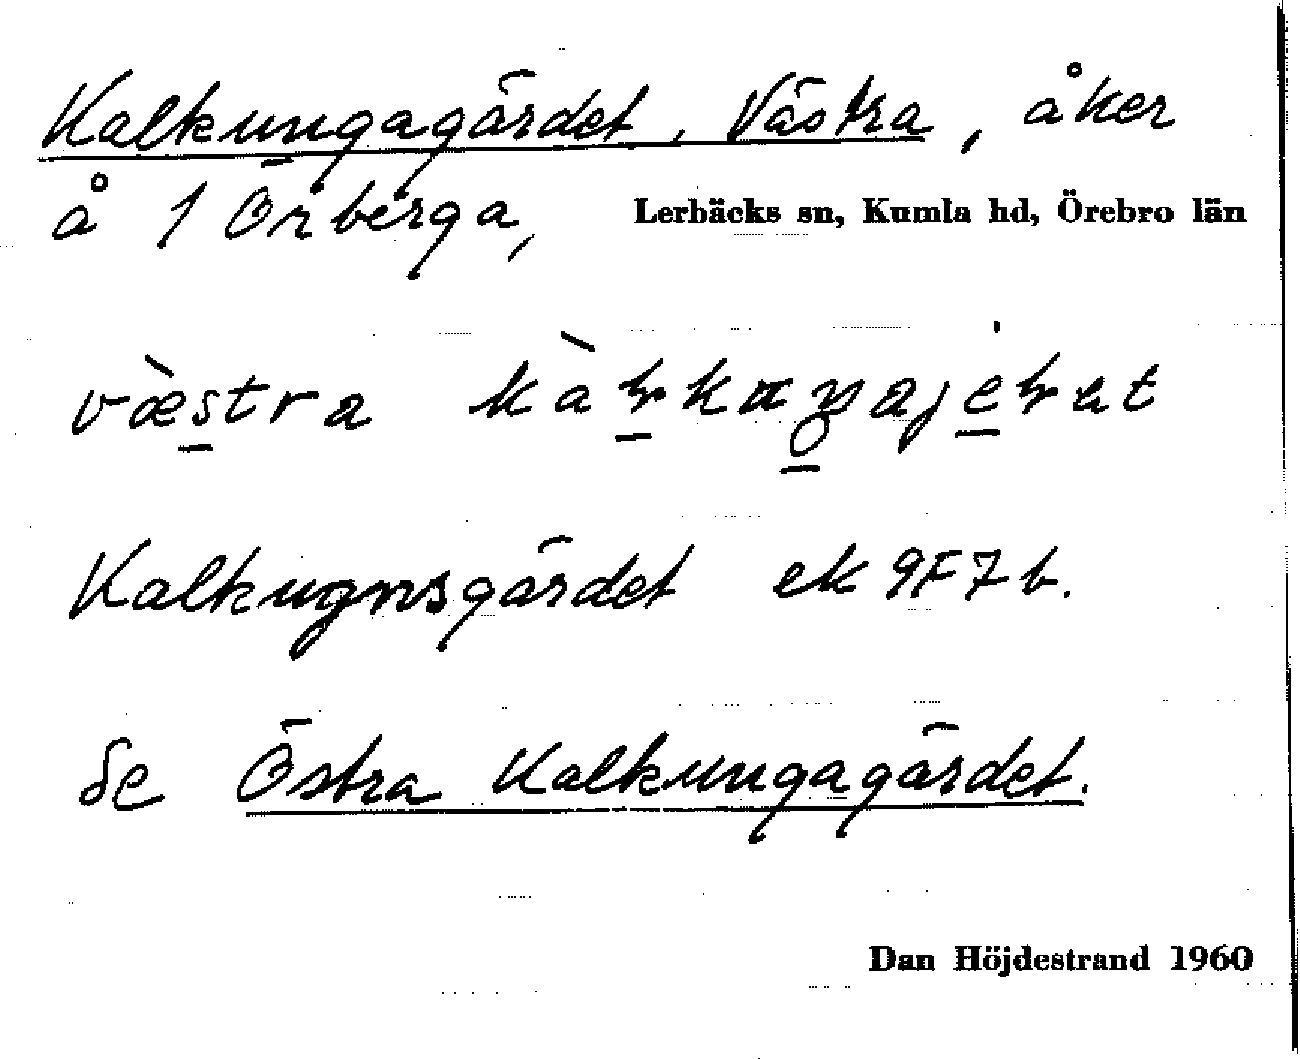 Kalkungagärdet, Västra, åker
å 1 Örberga, Lerbäcks sn, Kumla hd, Örebro län
västra
Kalkugnsgärdet ek 9F7b.
Se Östra Kalkungagärdet.
Dan Höjdestrand 1960